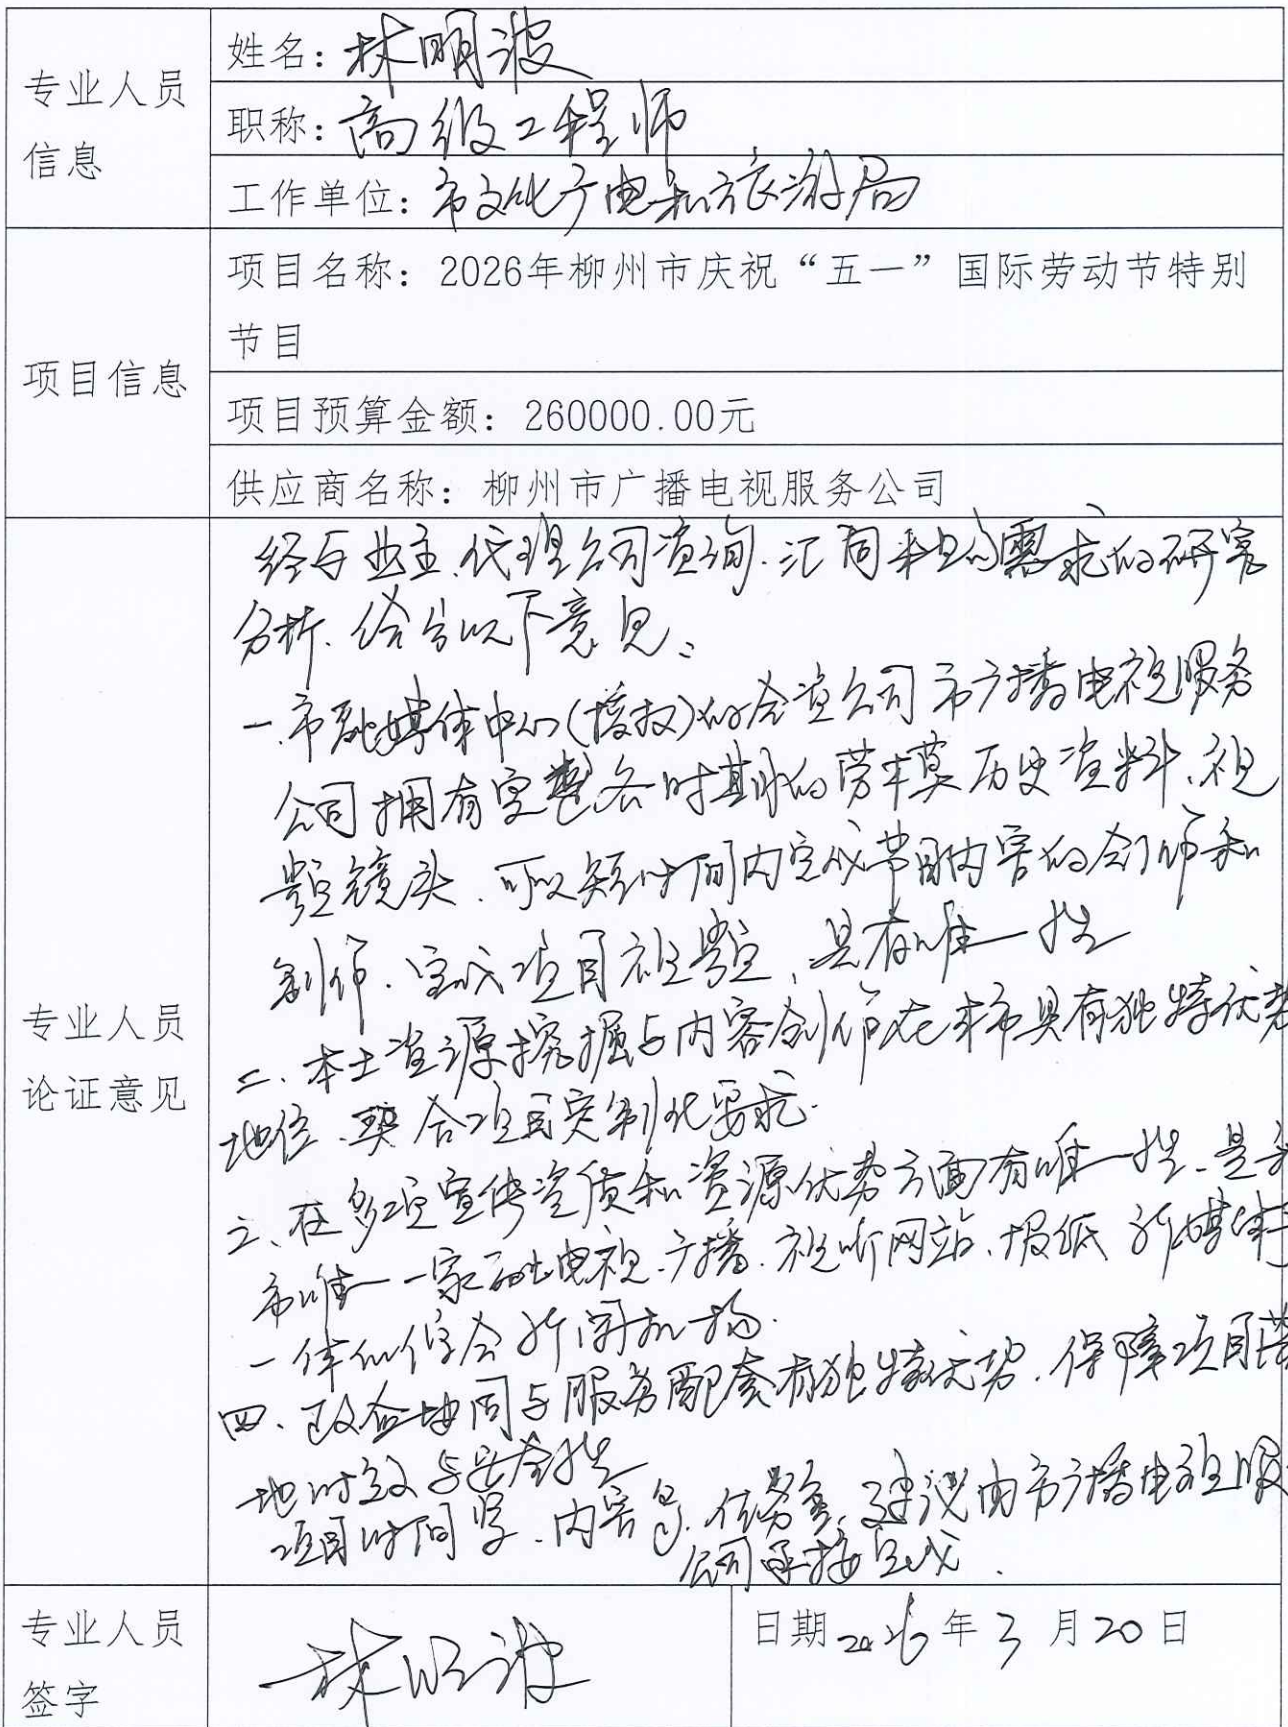 专业人员
信息
姓名：林明波
职称：高级工程师
工作单位：市文化广电和旅游局
项目信息
项目名称：2026年柳州市庆祝“五一”国际劳动节特别
节目
项目预算金额：260000.00元
供应商名称：柳州市广播电视服务公司
专业人员
论证意见
经与业主、代理公司咨询、汇同采购需求的研究
分析、给出以下意见：
一、市融媒体中心（授权）的全资公司市广播电视服务
公司拥有完整各时期的劳模历史资料、视
频镜头、可以短时间内完成节目内容的创作和
制作、完成项目视频、具有唯一性
二、本土资源挖掘与内容创作在本市具有独特优势
地位、契合项目定制化要求.
三、在多项宣传资质和资源优势方面有唯一性、是我
市唯一一家融电视、广播、视听网站、报纸、新媒体于
一体的综合新闻机构.
四、政企协同与服务配套有独特优势、保障项目落
地时效与安全性
项目时间紧、内容多、任务重、建议由市广播电视服
公司承接完成.
专业人员
签字
林明波
日期2026年3月20日